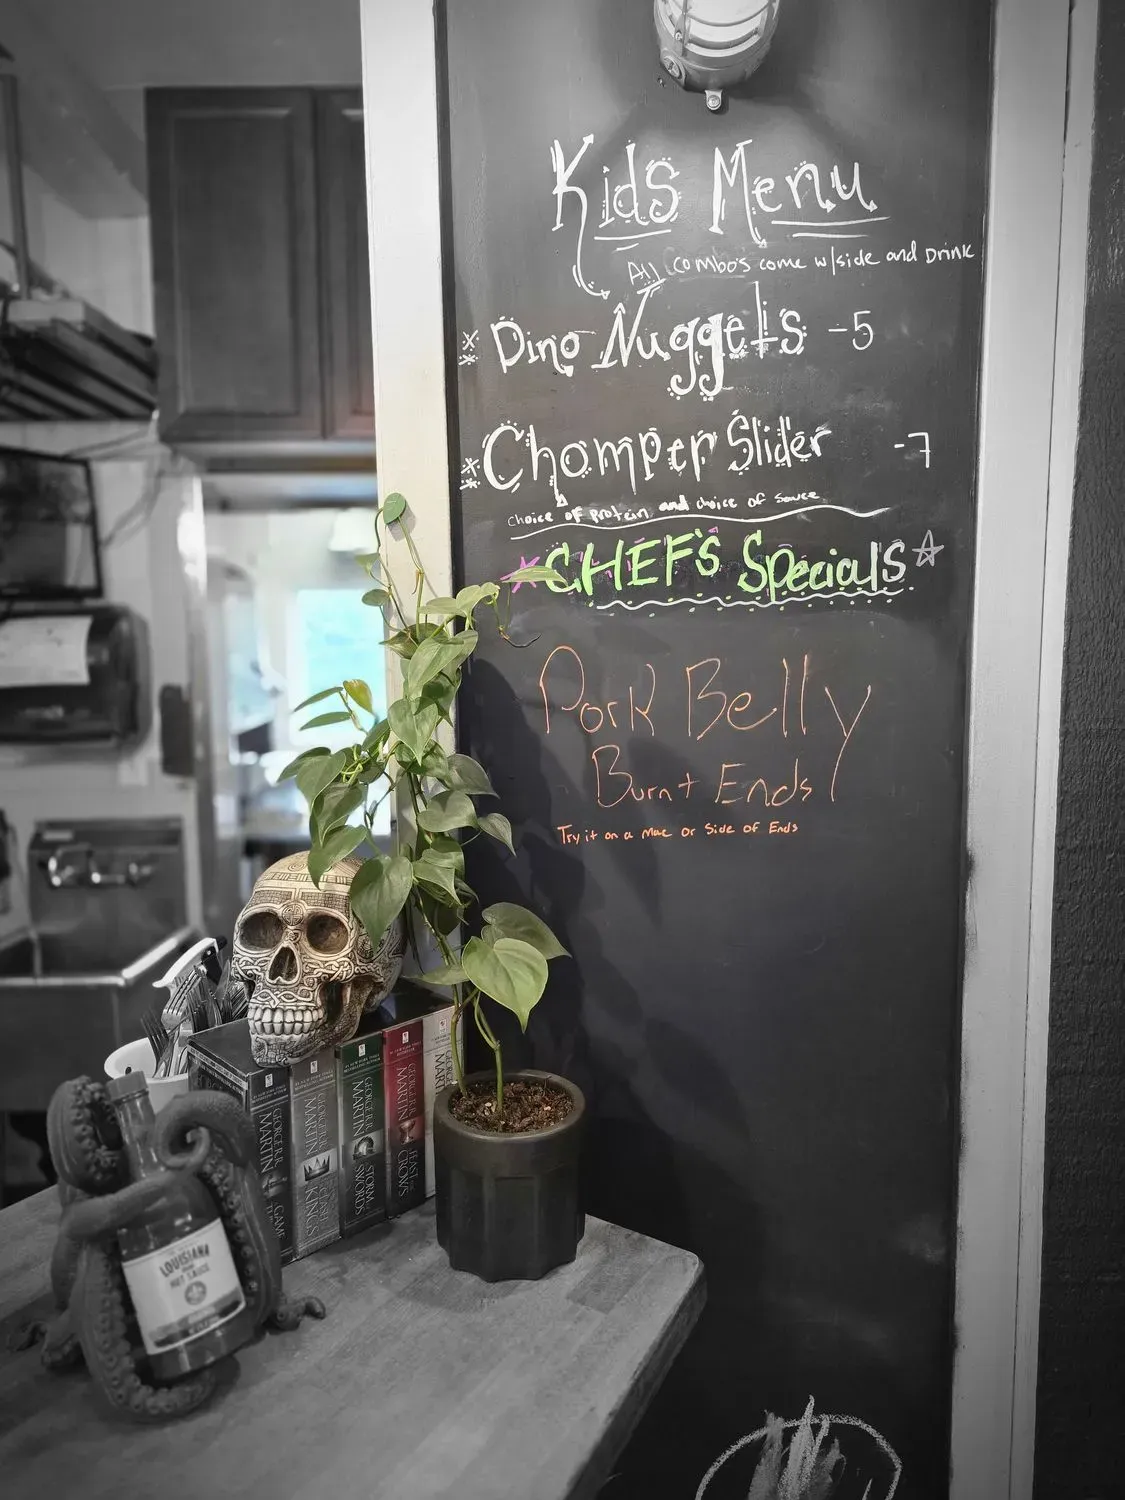 Kids Menu
All combo's come w/side and Drink
Dino Nuggets -5
Chomper Slider -7
choice of protein and choice of sauce
CHEF'S Specials
Pork Belly
Burnt Ends
Try it on a Mac or Side of Ends
GEORGE R.R. MARTIN
GEORGE R.R. MARTIN
KINGS
GEORGE R.R. MARTIN
STORM
SWORDS
GEORGE R.R. MARTIN
FEAST
CROWS
LOUISIANA
HOT SAUCE